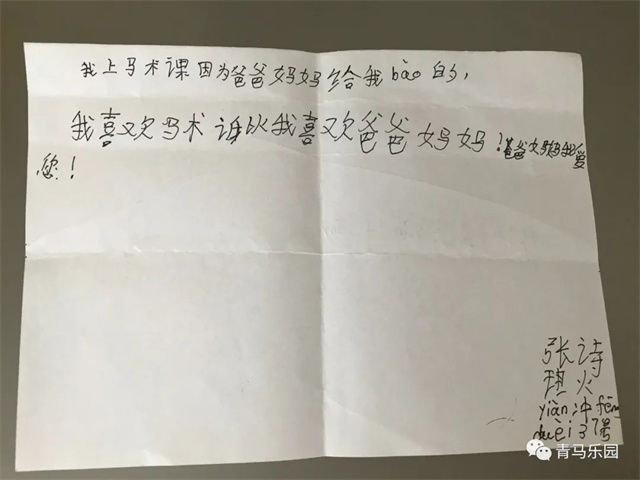 我上马术课因为爸爸妈妈给我bào的，
我喜欢马术课以我喜欢爸爸妈妈！爸爸妈妈我爱
您！
张诗
火
yiàn 冲fēng
duèi 37号
青马乐园